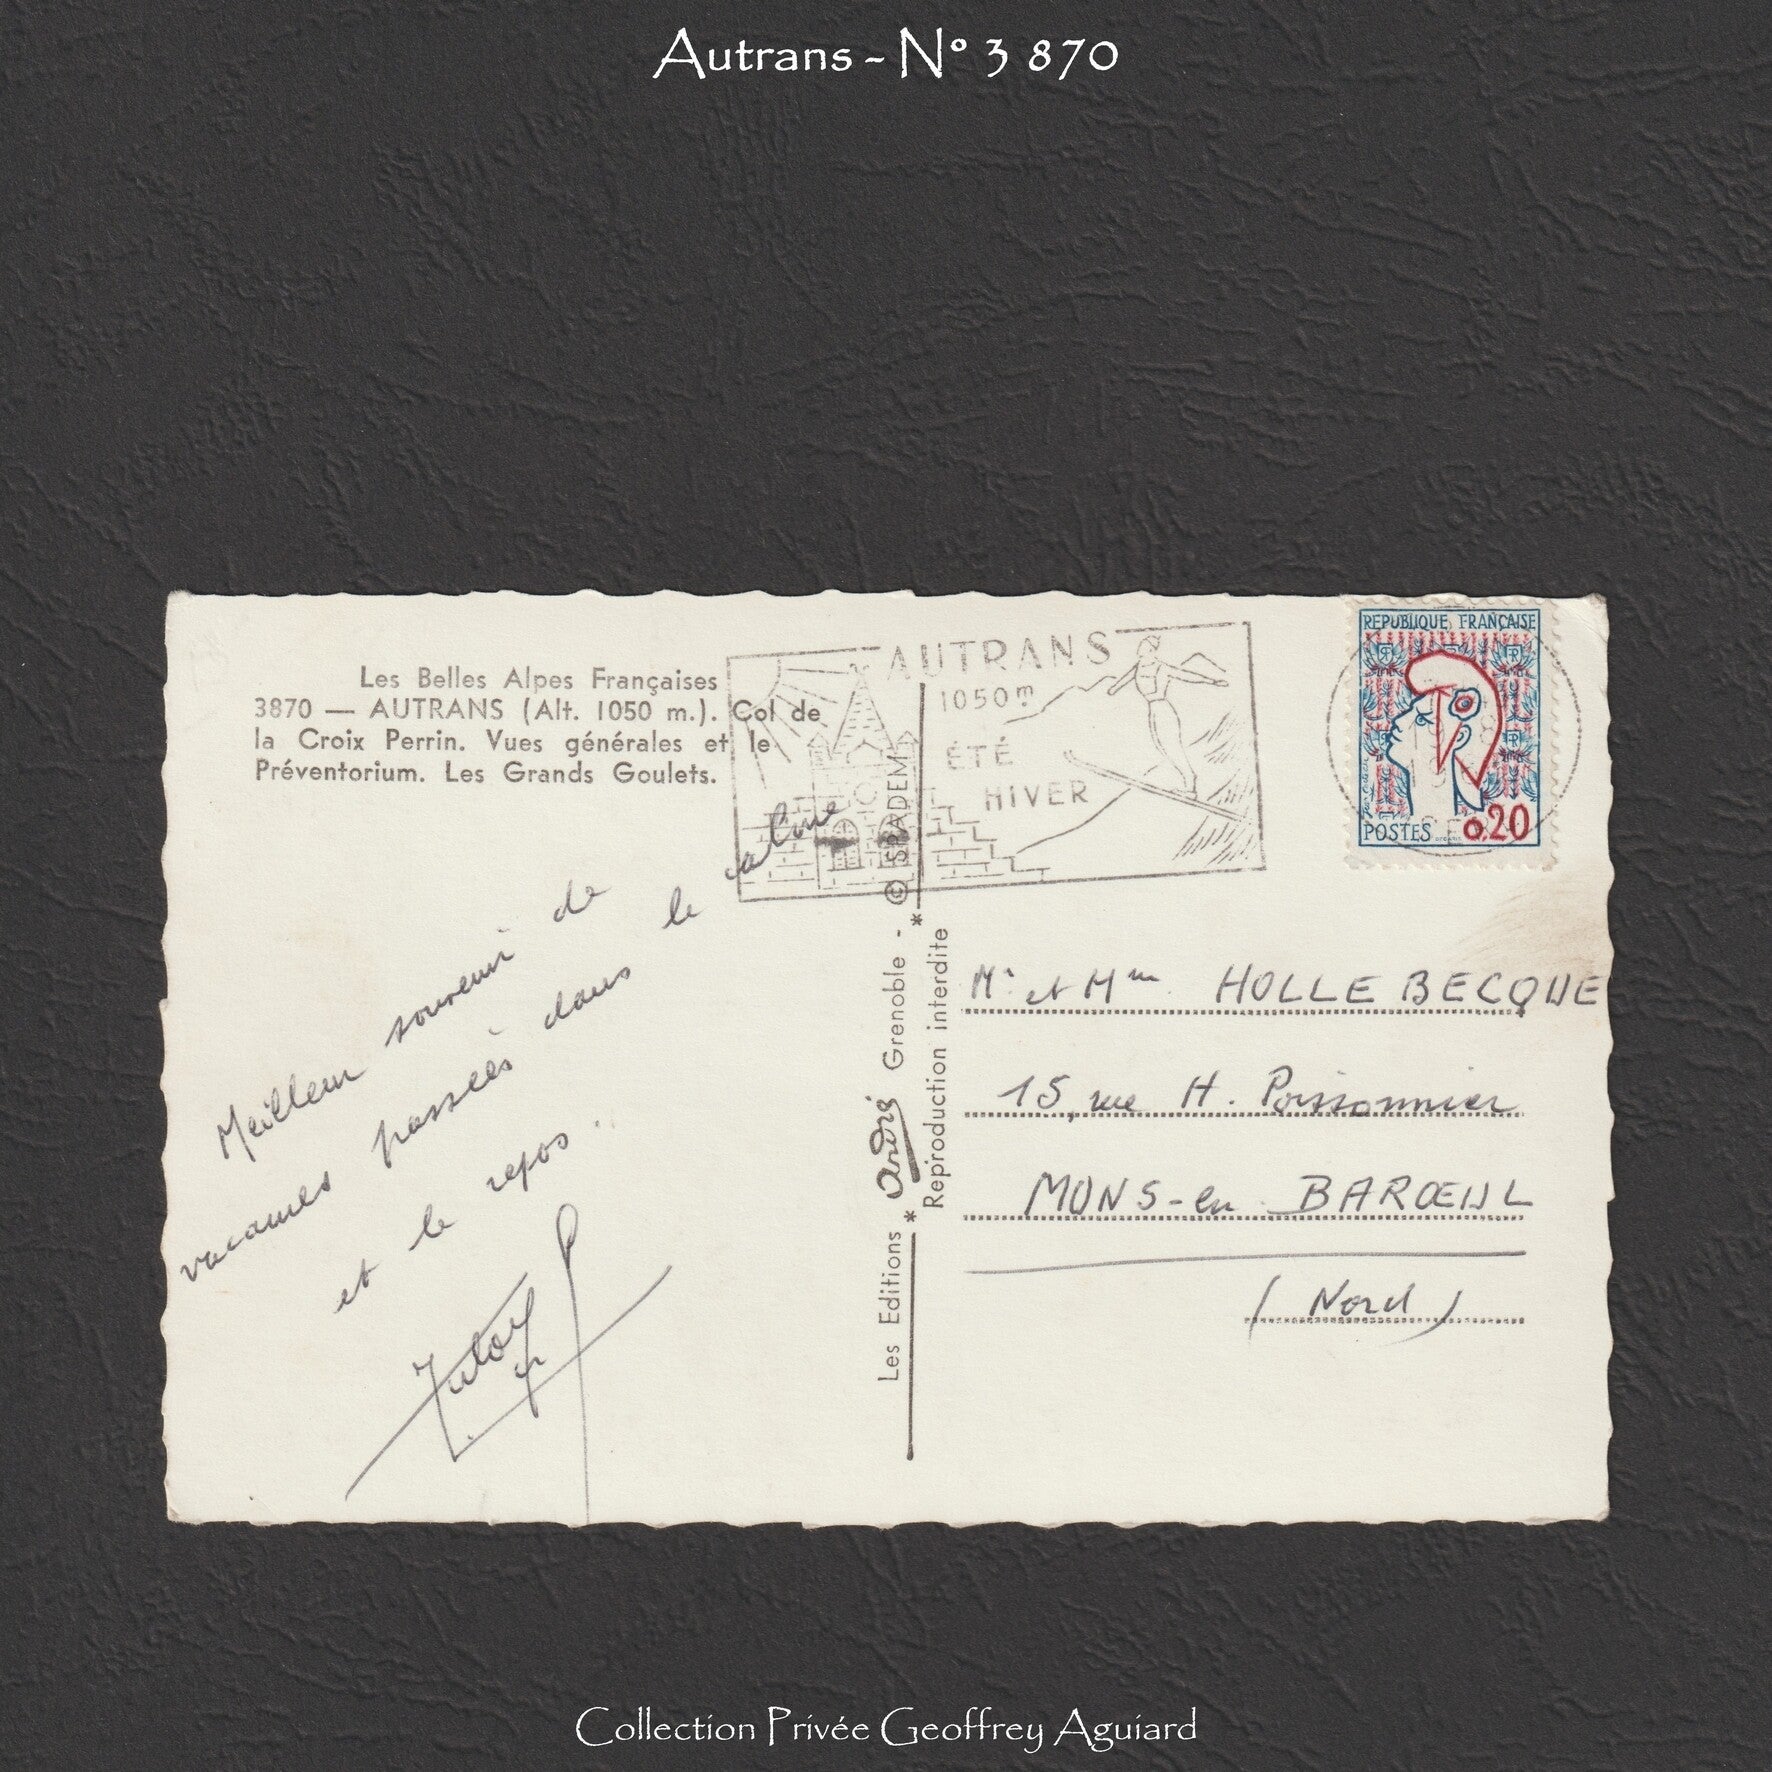 Autrans - N° 3 870
Les Belles Alpes Françaises
3870 — AUTRANS (Alt. 1050 m.). Col de
la Croix Perrin. Vues générales et le
Préventorium. Les Grands Goulets.
AUTRANS
1050m
ÉTÉ
HIVER
REPUBLIQUE FRANÇAISE
POSTES
0.20
Meilleur souvenir de
vacances passées dans le calme
et le repos.
Les Editions * André Grenoble - © SPADEM
* Reproduction interdite
Mr et Mme HOLLEBECQUE
15, rue H. Poissonnier
MONS-en-BARŒUL
(Nord)
Collection Privée Geoffrey Aguiard